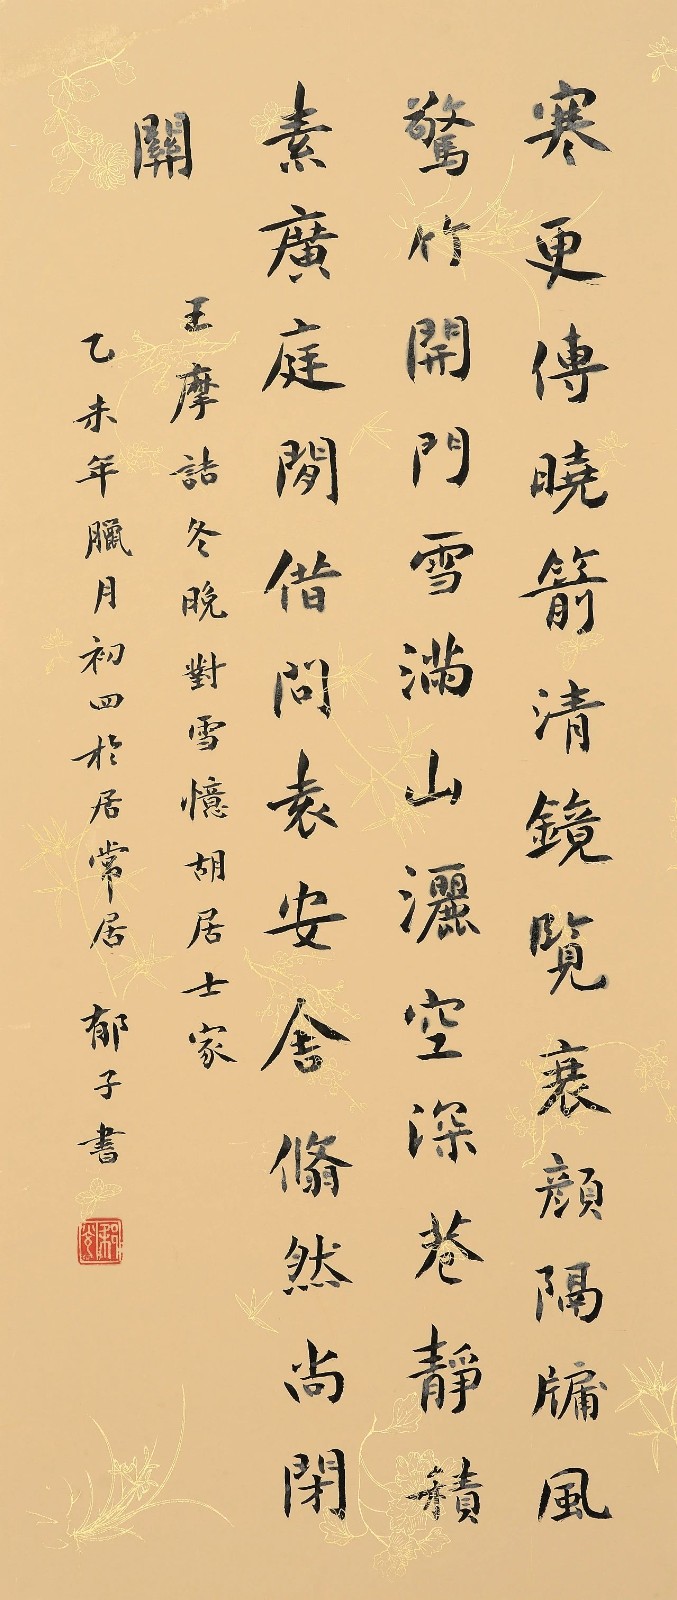 寒更傳曉箭清鏡覽衰顔隔牖風
驚竹開門雪滿山灑空深巷靜積
素廣庭閒借問袁安舍翛然尚閉
關
王摩詰冬晚對雪憶胡居士家
乙未年臘月初四於居常居 郁子書